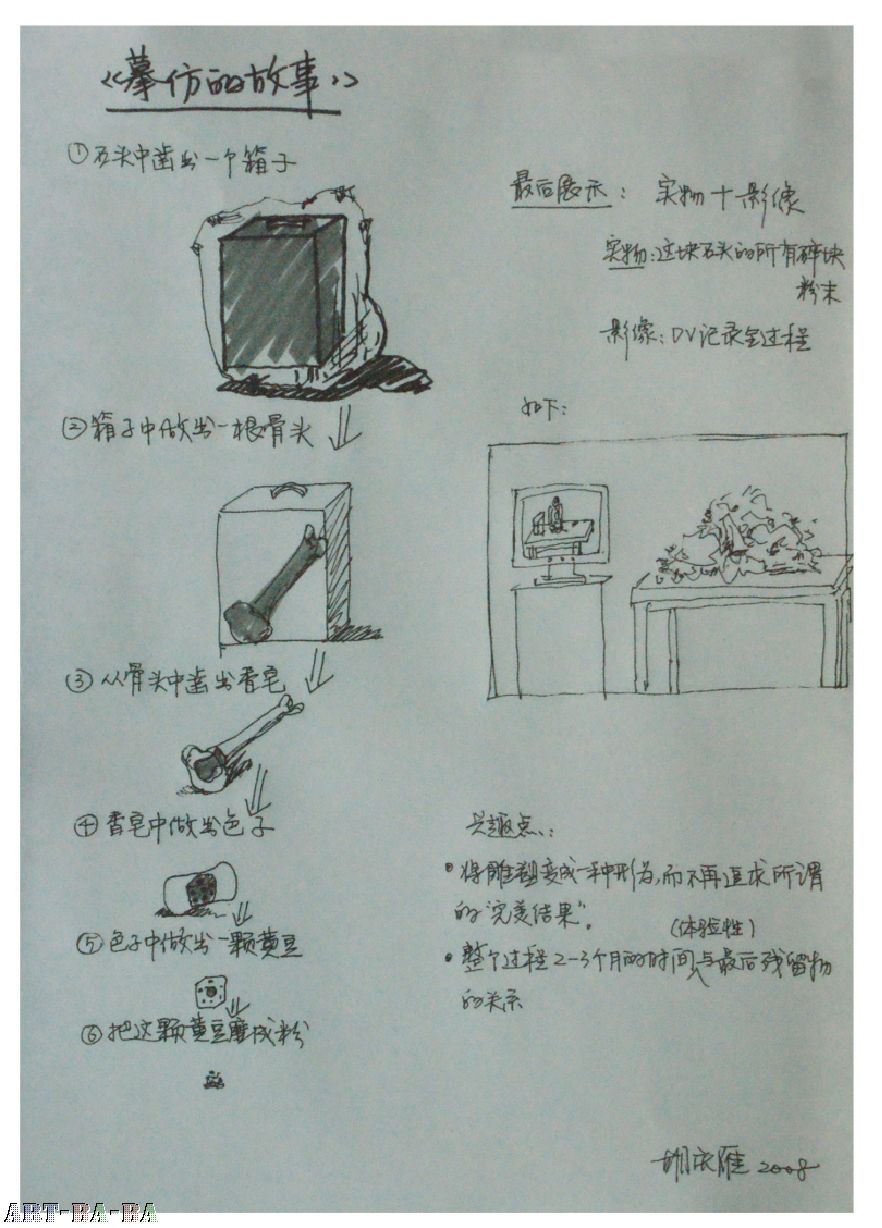 《摹仿的故事》
①石头中凿出一个箱子
②箱子中做出一根骨头
③从骨头中凿出香皂
④香皂中做出色子
⑤色子中做出一颗黄豆
⑥把这颗黄豆磨成粉
最后展示：实物＋影像
实物：这块石头的所有碎块
粉末
影像：DV记录全过程
如下：
兴趣点：
•将雕塑变成一种形为，而不再追求所谓
的“完美结果”。
(体验性)
•整个过程2-3个月的时间与最后残留物
的关系
胡庆雁 2008
ART-BA-BA